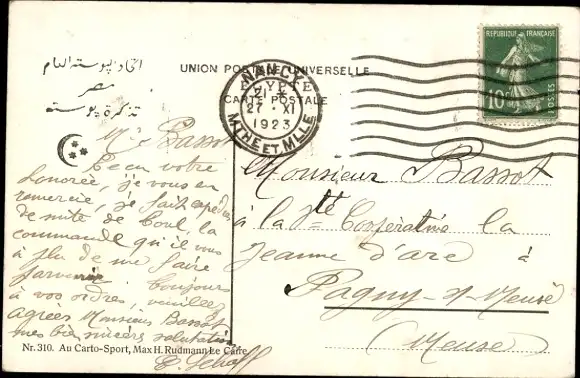 اتحاد البوستة العام
مصر
تذكرة بوستة
UNION POSTALE UNIVERSELLE
EGYPTE
CARTE POSTALE
NANCY
21
27 XI
1923
MTHE ET MLLE
REPUBLIQUE FRANÇAISE
10
POSTES
Mr Bassot
votre
honorée, je vous en
remercie, je fais
de suite de Toul, la
commande qu'il vous
à plu de me faire
parvenir Toujours
à vos ordres, veuillez
agréer Monsieur Bassot
mes bien sincères salutations
Monsieur Bassot
à la Sté Coopérative la
Jeanne d'arc à
Pagny-s/-Meuse
(Meuse)
Nr. 310. Au Carto-Sport, Max H. Rudmann Le Caire